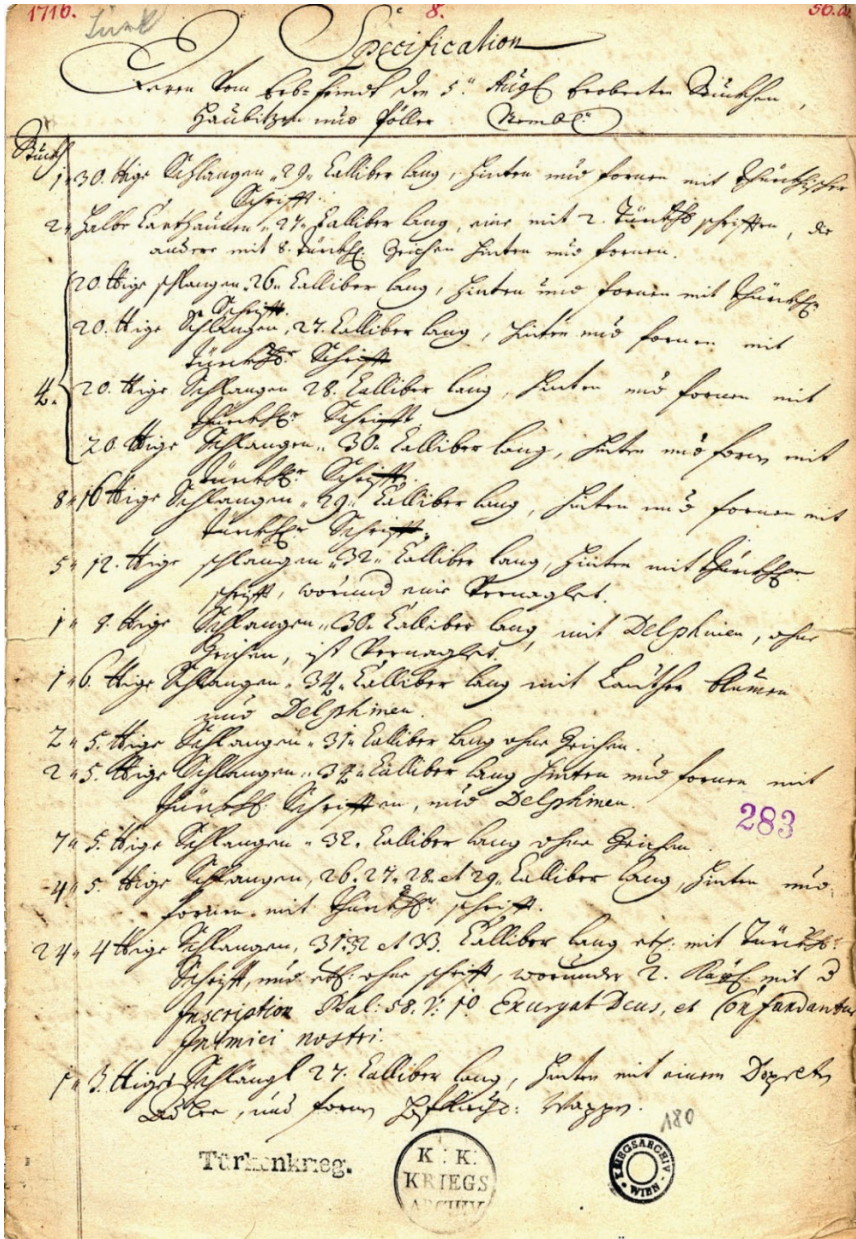 1716. 8. 56.a
Specification
Deren Vom Erb-feindt den 5. Aug. Eroberten Stückhen,
Haubitzen und Pöller. Nembl.
Stückh
1„ 30. ℔ige Schlangen „29„ Calliber lang, hinten und fornen mit Thürckhischer
Schrifft.
2„ Halbe Carthaunen „27„ Calliber lang, eine mit 2. Türckh: schrifften, die
andere mit 8. Türckh: Zeichen hinten und fornen.
20 ℔ige schlangen 26„ Calliber lang, hinten und fornen mit Thürckh:
Schrifft.
20. ℔ige Schlangen, 27. Calliber lang, hinten und fornen mit
Türckh: Schrifft
4. 20. ℔ige Schlangen 28. Calliber lang, hinten und fornen mit
Thürckh: Schrifft
20 ℔ige Schlangen„ 30„ Calliber lang, hinten und forn mit
Türckh: Schrifft.
8„ 16 ℔ige Schlangen „29„ Calliber lang, hinten und fornen mit
Türckh: Schrifft.
5„ 12. ℔ige schlangen „32„ Calliber lang, hinten mit Thürckh:
schrifft, worund eine Vernaglet.
1„ 8. ℔ige Schlangen „30„ Calliber lang, mit Delphinen, ohne
Zeichen, ist Vernaglet.
1„ 6. ℔ige Schlangen „34„ Calliber lang mit Lauther blumen
und Delphinen.
2„ 5. ℔ige Schlangen „31„ Calliber lang ohne Zeichen.
2„ 5. ℔ige Schlangen „34„ Calliber lang hinten und fornen mit
Thürckh: Schrifften, und Delphinen.
283
7„ 5. ℔ige Schlangen „32„ Calliber lang ohne Zeichen.
4„ 5. ℔ige Schlangen, 26. 27. 28. et 29„ Calliber lang, hinten und
fornen mit Thürckh: schrifft.
24„ 4 ℔ige Schlangen, 31 32 et 33. Calliber lang etl: mit Türckh:
Schrifft, und etl: ohne schrifft, worunder 2. mit d
Inscription Psal: 58. V: 10 Exurgat Deus, et Confundantur
Inimici nostri.
1„ 3. ℔ige Schlängl 27. Calliber lang, hinten mit einem
Adler, und forn Wappn.
180
Türkenkrieg.
K: K:
KRIEGS
ARCHIV
KRIEGSARCHIV
WIEN